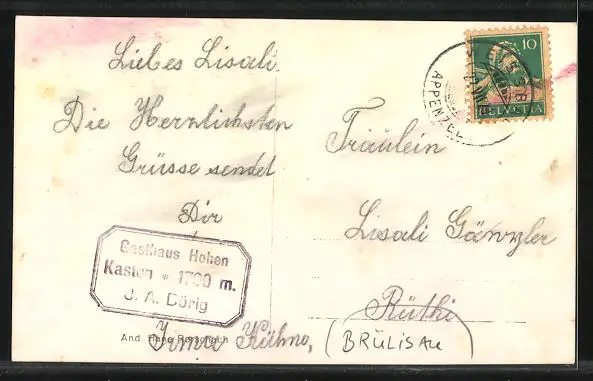 Liebes Lisali.
Die Herrlichsten
Grüsse sendet
Dir
Gasthaus Hohen
Kasten * 1799 m.
J. A. Dörig
Irma Kühno,
And Hane Rorschach
10
HELVETIA
APPENZELL
Fräulein
Lisali Gänzler
Rüthi
(BRÜLISAU)